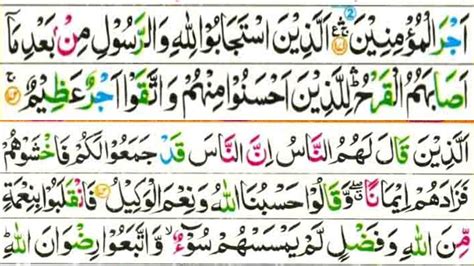 اَجْرَ الْمُؤْمِنِيْنَ ۛ اَلَّذِيْنَ اسْتَجَابُوْا لِلّٰهِ وَالرَّسُوْلِ مِنْۢ بَعْدِ مَاۤ
اَصَابَهُمُ الْقَرْحُ ۛ لِلَّذِيْنَ اَحْسَنُوْا مِنْهُمْ وَاتَّقَوْا اَجْرٌ عَظِيْمٌ
اَلَّذِيْنَ قَالَ لَهُمُ النَّاسُ اِنَّ النَّاسَ قَدْ جَمَعُوْا لَكُمْ فَاخْشَوْهُمْ
فَزَادَهُمْ اِيْمَانًا ۖ وَّقَالُوْا حَسْبُنَا اللّٰهُ وَنِعْمَ الْوَكِيْلُ فَانْقَلَبُوْا بِنِعْمَةٍ
مِّنَ اللّٰهِ وَفَضْلٍ لَّمْ يَمْسَسْهُمْ سُوْٓءٌ ۙ وَّاتَّبَعُوْا رِضْوَانَ اللّٰهِ ؕ